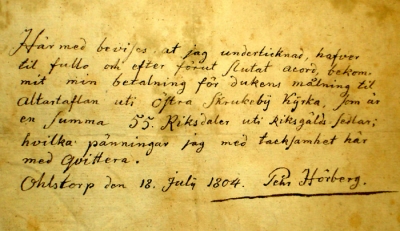 Här med bevises at jag undertecknad, hafver
til fullo och efter förut slutat acord, bekom-
mit min betalning för dukens målning til
Altartaflan uti Östra Skrukeby Kyrka, som är
en summa 55. Riksdaler uti Riksgälds sedlar;
hvilka pänningar jag med tacksamhet här
med Qvittera.
Ohlstorp den 18. July 1804. Pehr Hörberg.